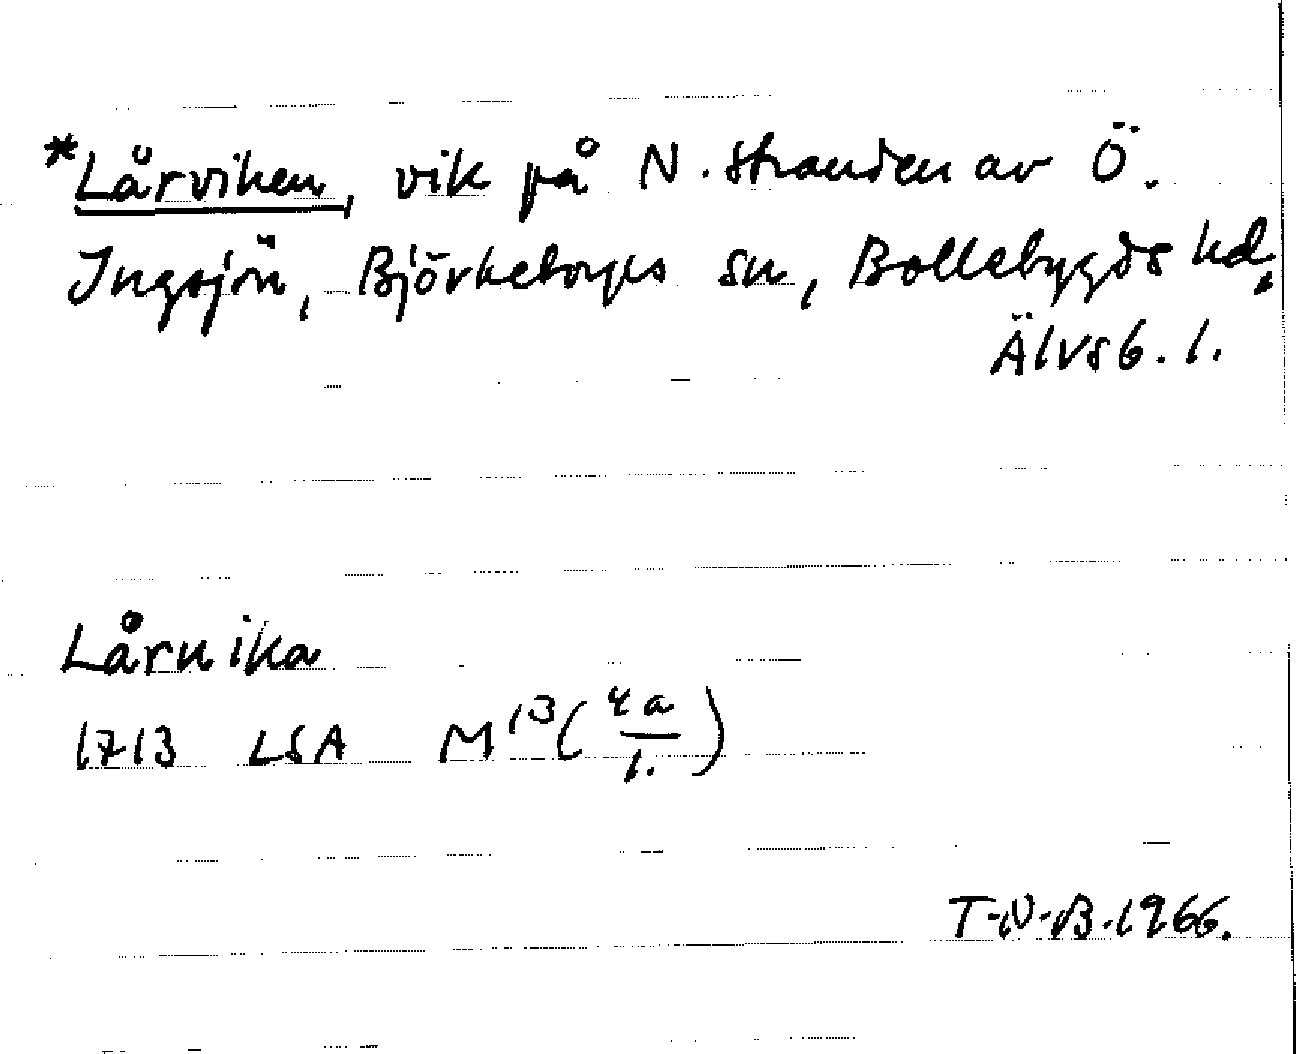 *Lårviken, vik på N. stranden av Ö.
Ingsjön, Björketorps sn, Bollebygds hd,
Älvsb. l.
Lårvika
1713 LSA M¹³(4a/1.)
T-N-B. 1966.